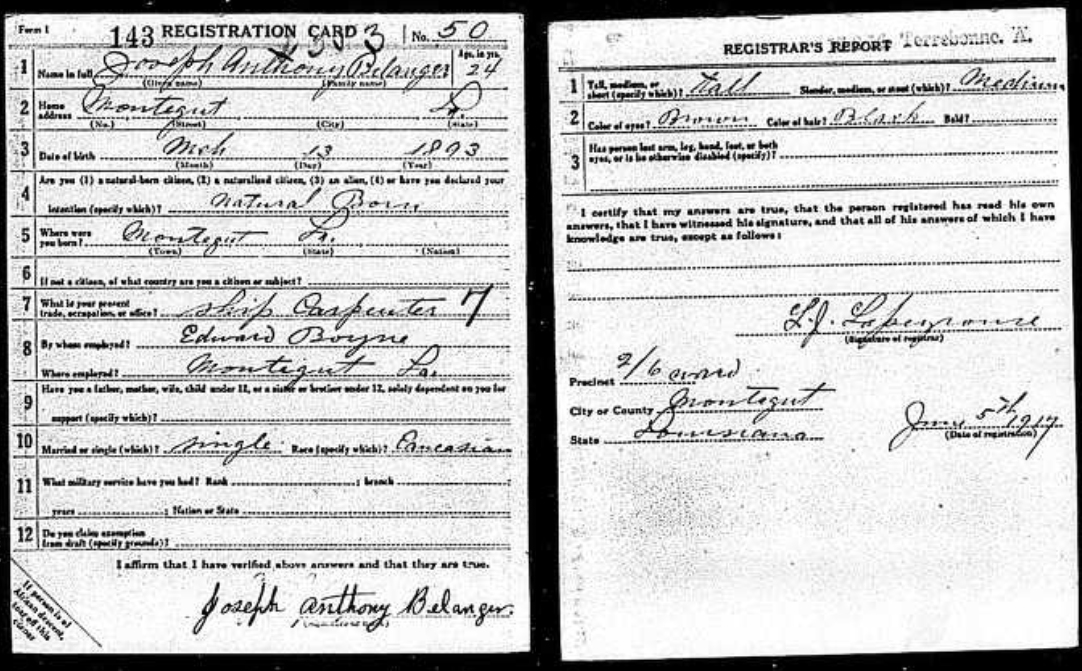 Form 1
143 REGISTRATION CARD 3 No. 50
1 Name in full Joseph Anthony Belanger Age, in yrs. 24
(Given name) (Family name)
2 Home address Montegut La.
(No.) (Street) (City) (State)
3 Date of birth Mch 13 1893
(Month) (Day) (Year)
Are you (1) a natural-born citizen, (2) a naturalized citizen, (3) an alien, (4) or have you declared your
4 intention (specify which)? Natural Born
5 Where were you born? Montegut La.
(Town) (State) (Nation)
6 If not a citizen, of what country are you a citizen or subject?
7 What is your present trade, occupation, or office? Ship Carpenter 7
8 By whom employed? Edward Boyne
Where employed? Montegut La.
9 Have you a father, mother, wife, child under 12, or a sister or brother under 12, solely dependent on you for
support (specify which)?
10 Married or single (which)? Single Race (specify which)? Caucasian
11 What military service have you had? Rank ; branch ;
years ; Nation or State
12 Do you claim exemption from draft (specify grounds)?
I affirm that I have verified above answers and that they are true.
Joseph Anthony Belanger.
If person is of
African descent,
tear off this
corner
REGISTRAR'S REPORT Terrebonne,
1 Tall, medium, or short (specify which)? Tall Slender, medium, or stout (which)? Medium
2 Color of eyes? Brown Color of hair? Black Bald?
3 Has person lost arm, leg, hand, foot, or both
eyes, or is he otherwise disabled (specify)?
I certify that my answers are true, that the person registered has read his own
answers, that I have witnessed his signature, and that all of his answers of which I have
knowledge are true, except as follows:
L. J. Lapeyrouse
(Signature of registrar)
Precinct 2/6 ward
City or County Montegut
State Louisiana
June 5th 1917
(Date of registration)